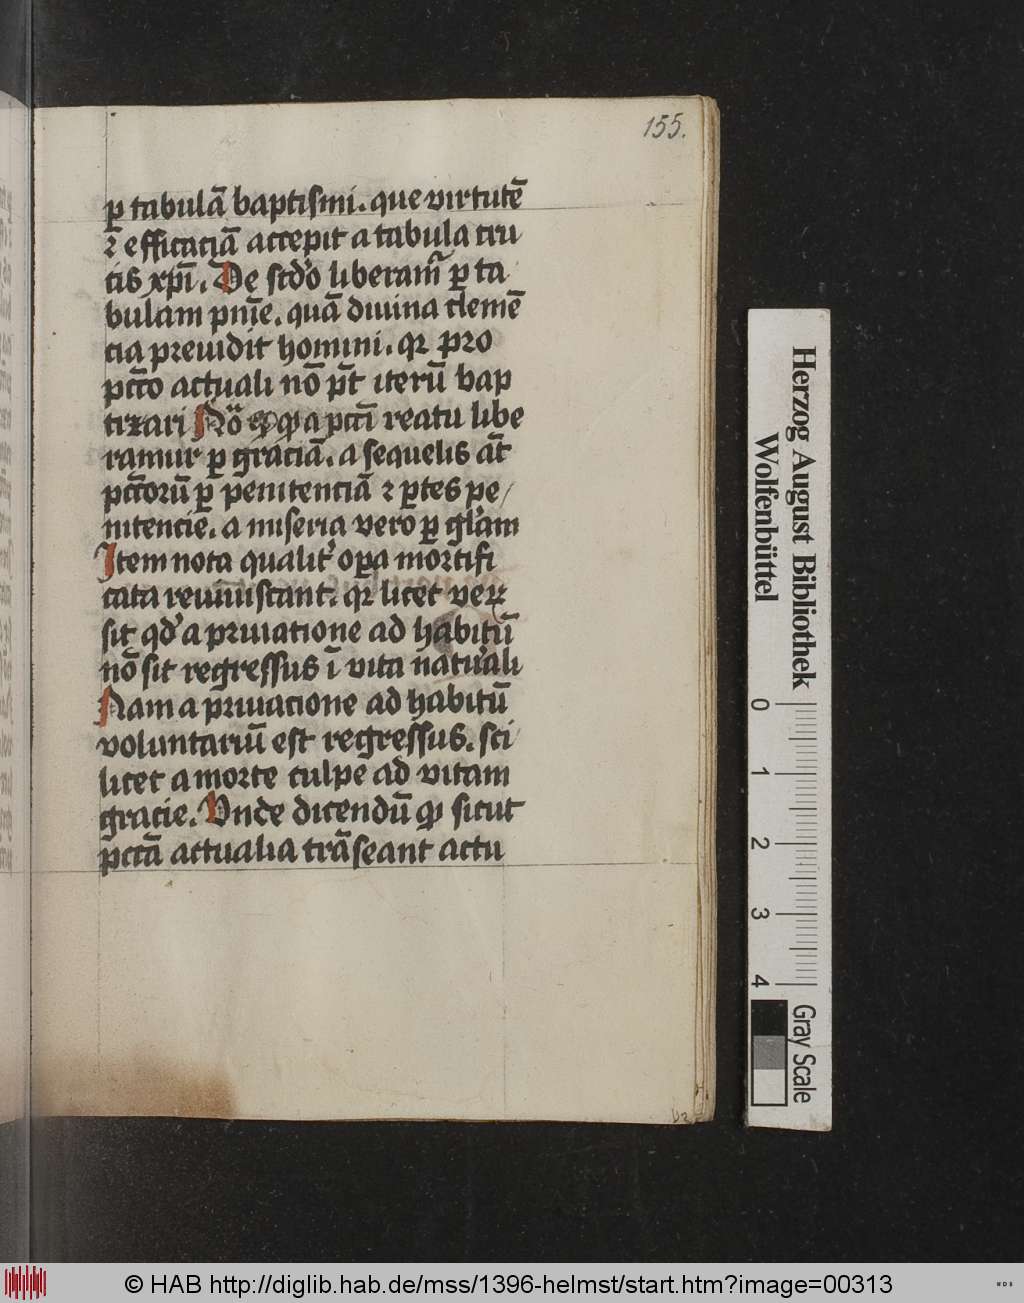 155.
ꝑ tabulā baptismi. que virtutē
ꝛ efficaciā accepit a tabula cru
cis xp̄i. De scd̕o liberam̃ ꝑ ta
bulam pn̄ie. quā diuina clemē
cia preuidit homini. qꝛ pro
pctō actuali nō pt̄ iterū bap
tizari Nō a pctī reatu libe
ramur ꝑ graciā. a sequelis aūt
pctōrū ꝑ penitenciā ꝛ ꝑtes pe/
nitencie. a miseria vero ꝑ gl̕am
Item nota qualit̕ oꝑa mortifi
cata reuiuiscant. qꝛ licet veꝝ
sit qd̕ a priuatione ad habitū
nō sit regressus ī vita nat̕ali
Nam a priuacione ad habitū
voluntariū est regressus. sci
licet a morte culpe ad vitam
gracie. Vnde dicendū ꝙ sicut
pctā actualia trāseant actu
Herzog August Bibliothek
Wolfenbüttel
0 1 2 3 4
Gray Scale
© HAB http://diglib.hab.de/mss/1396-helmst/start.htm?image=00313